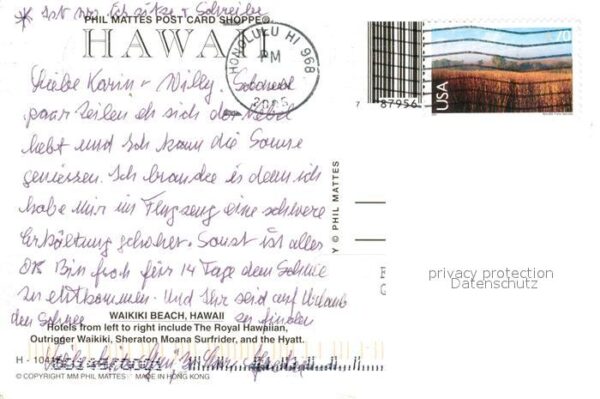 * Ist nur Ich sitze + Schreibe
PHIL MATTES POST CARD SHOPPE®
HAWAII
HONOLULU HI 968
PM
2005
70
USA
87956
Liebe Karin + Willy. Schnell
paar Zeilen eh sich der Nebel
hebt und Ich kann die Sonne
geniessen. Ich brauche es denn ich
habe mir im Flugzeug eine schwere
Erkältung geholt. Sonst ist alles
OK Bin froh für 14 Tage dem Schnee
zu entkommen. Und Ihr seid auf Urlaub
den Schnee zu finden
Y © PHIL MATTES
privacy protection
Datenschutz
WAIKIKI BEACH, HAWAII
Hotels from left to right include The Royal Hawaiian,
Outrigger Waikiki, Sheraton Moana Surfrider, and the Hyatt.
H - 104
© COPYRIGHT MM PHIL MATTES MADE IN HONG KONG